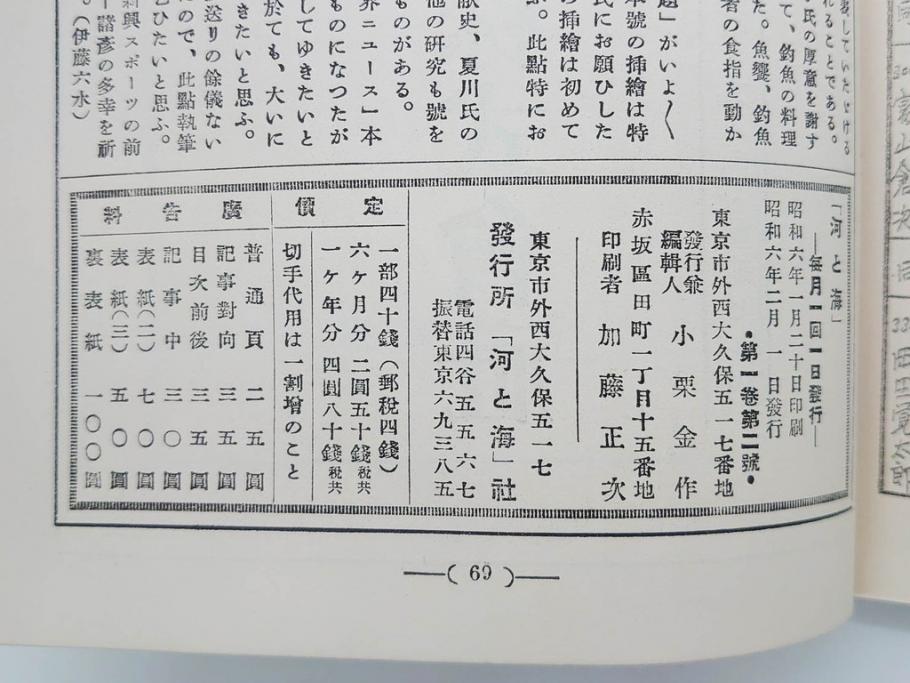 表していたゞける
れることである。
氏の厚意を謝す
て、釣魚の料理
た。魚饗、釣魚
者の食指を動か
題」がいよ〱
本號の挿繪は特
氏にお願ひした
の挿繪は初めて
ぶ。此點特にお
献史、夏川氏の
他の研究も號を
ものがある。
界ニュース」本
ものになつたが
してゆきたいと
於ても、大いに
きたいと思ふ。
送りの餘儀ない
たので、此點執筆
乞ひたいと思ふ。
新興スポーツの前
諸彦の多幸を祈
。（伊藤六水）
「河と海」
―毎月一回一日發行―
昭和六年一月二十日印刷
昭和六年二月一日發行
•第一卷第二號•
東京市外西大久保五一七番地
發行兼
編輯人 小栗金作
赤坂區田町一丁目十五番地
印刷者 加藤正次
東京市外西大久保五一七
發行所「河と海」社
電話四谷五五六七
振替東京六九三八五
定價
一部四十錢（郵税四錢）
六ヶ月分 二圓五十錢税共
一ヶ年分 四圓八十錢税共
切手代用は一割增のこと
廣告料
普通頁 二五圓
記事對向 三五圓
目次前後 三五圓
記事中 三〇圓
表紙(二) 七〇圓
表紙(三) 五〇圓
裏表紙 一〇〇圓
―( 69 )―